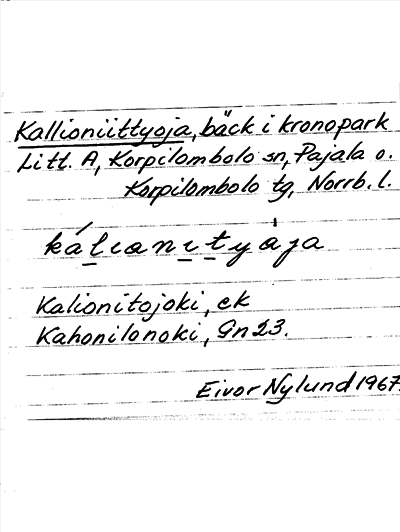 Kallioniittyoja, bäck i kronopark
Litt. A, Korpilombolo sn, Pajala o.
Korpilombolo tg, Norrb. l.
kálıanıtyȧja
Kalionitojoki, ek
Kahonilonoki, Gn 23.
Eivor Nylund 1967.